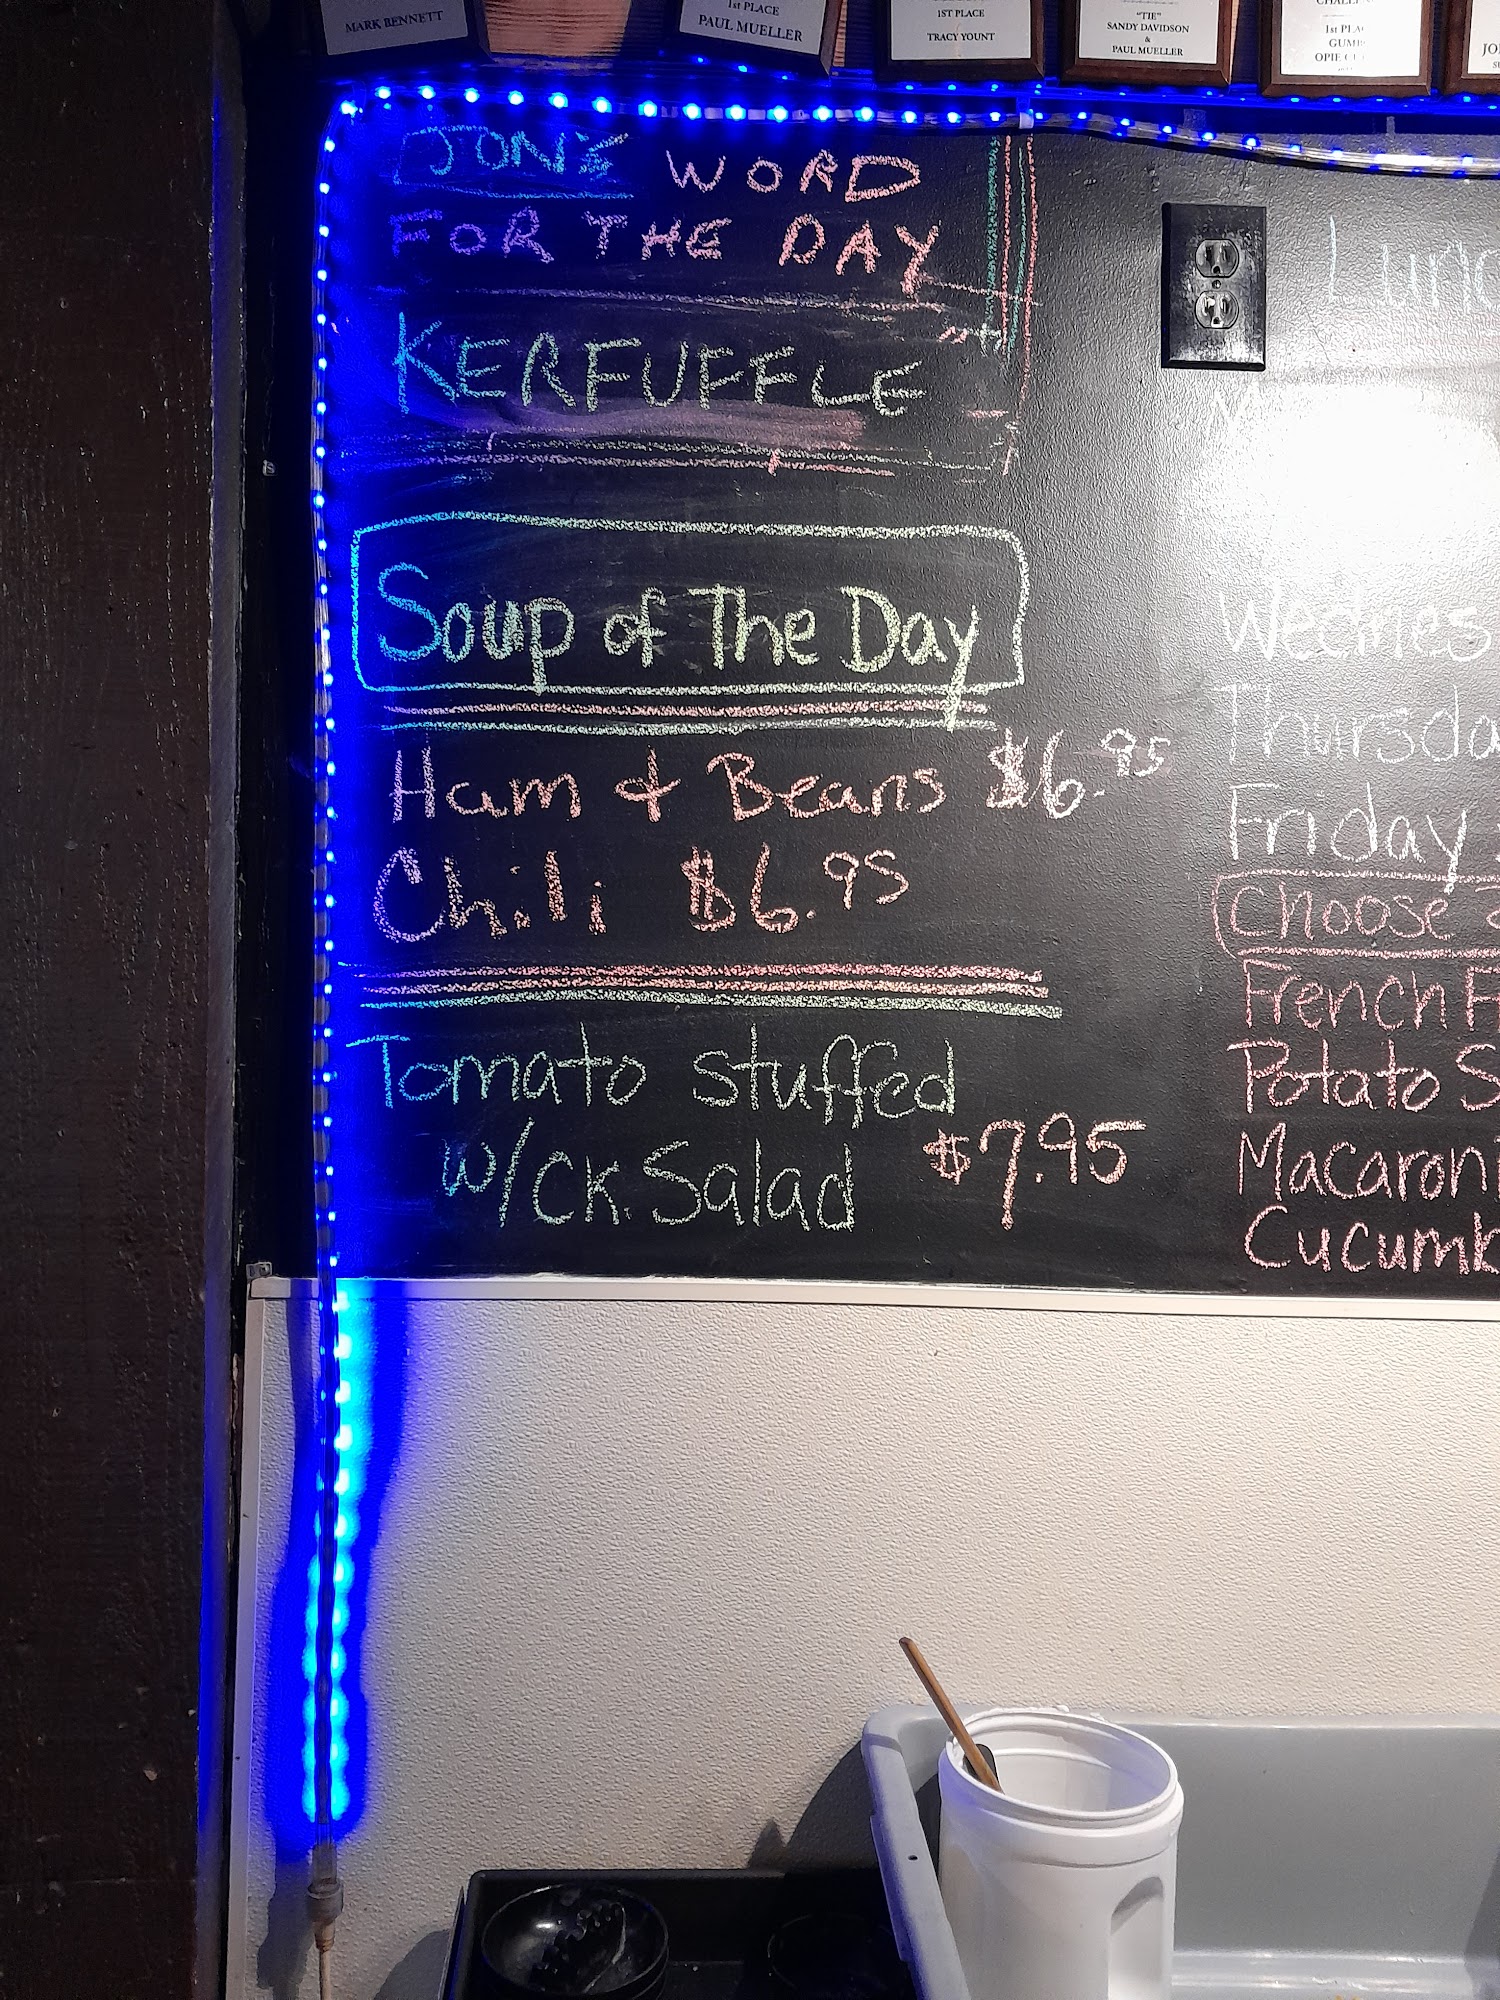 MARK BENNETT
1st PLACE
PAUL MUELLER
1ST PLACE
TRACY YOUNT
"TIE"
SANDY DAVIDSON
&
PAUL MUELLER
1st PLA
GUMB
OPIE
JON'S WORD
FOR THE DAY
KERFUFFLE
Soup of The Day
Ham & Beans $6.95
Chili $6.95
Tomato stuffed
w/ck. Salad $7.95
Lunc
Wednes
Thursda
Friday
Choose
French F
Potato S
Macaroni
Cucumb